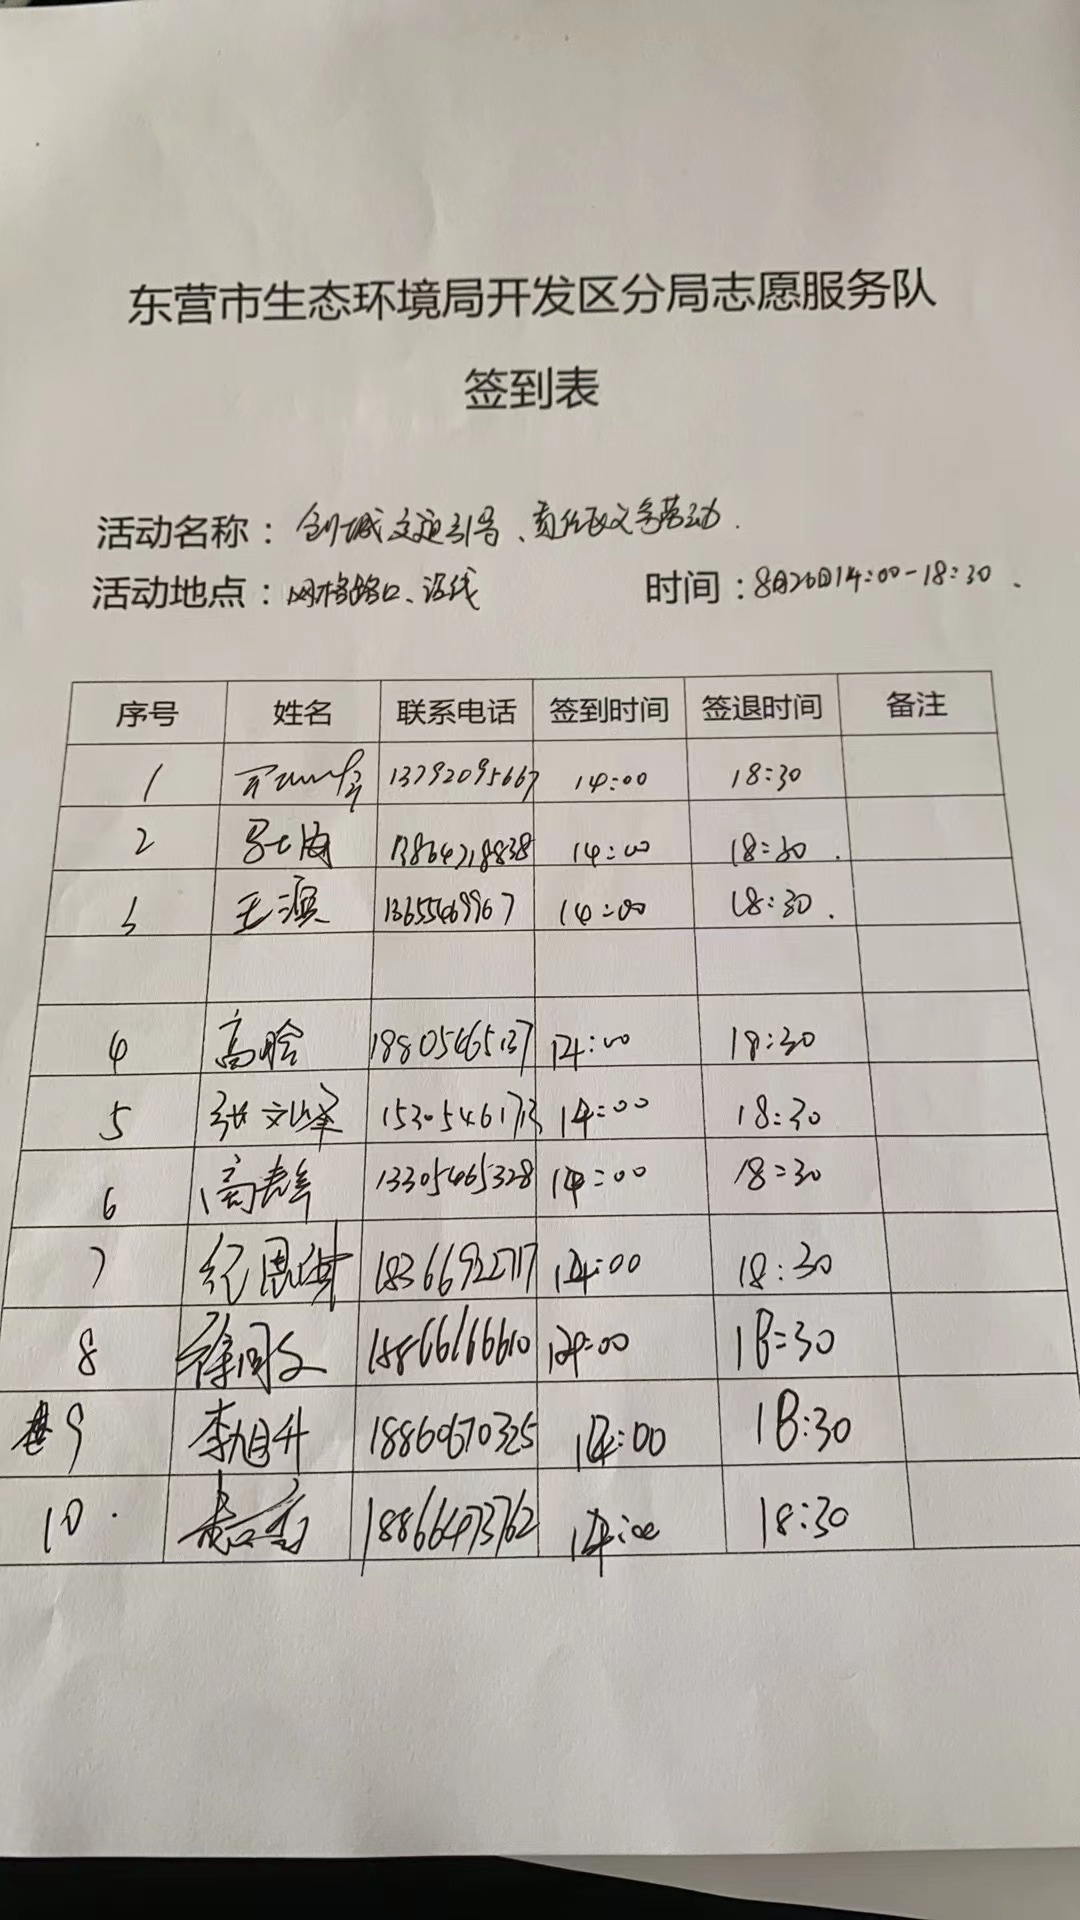 东营市生态环境局开发区分局志愿服务队
签到表
活动名称：创城交通引导、责任区义务劳动.
活动地点：网格路口、沿线 时间：8月26日14:00-18:30.
序号 姓名 联系电话 签到时间 签退时间 备注
1 13792095667 14:00 18:30
2 13864218838 14:00 18:30.
3 王滨 13655469967 14:00 18:30.
4 高晗 18805465137 14:00 18:30
5 张文峰 14:00 18:30
6 高春年 13305465328 14:00 18:30
7 纪恩琪 18366922717 14:00 18:30
8 徐同文 18866166610 14:00 18:30
9 李旭升 18860670325 14:00 18:30
10. 18866473762 14:00 18:30